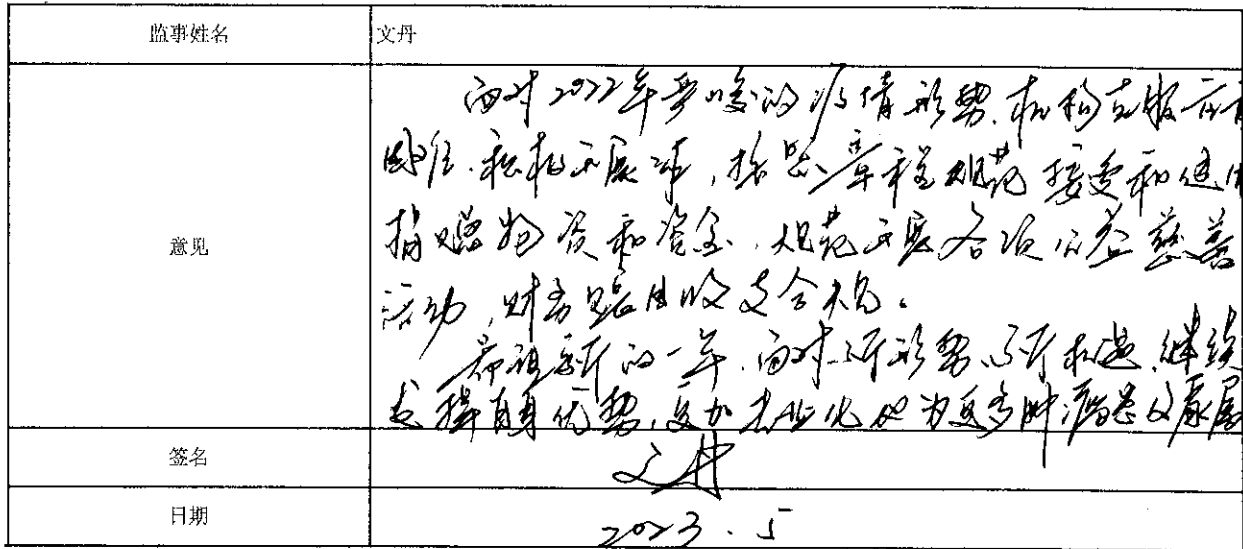 监事姓名 文丹
意见
面对2022年严峻的疫情形势,机构克服
困难,积极开展工作,按照章程规范接受和使用
捐赠物资和资金,规范开展各项公益慈善
活动,财务账目收支合规。
希望新的一年,面对新形势、新机遇,继续
发挥自身优势,更加专业化地为更多肿瘤患者及家属
签名 文丹
日期 2023.5